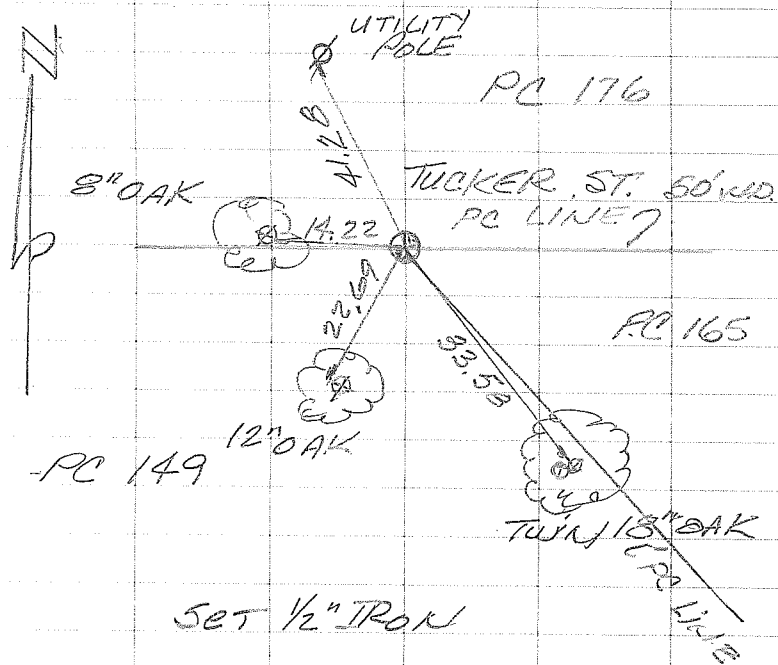 N
UTILITY
POLE
PC 176
41.28
8" OAK
TUCKER ST. 50' WD.
PC LINE
14.22
22.69
33.58
PC 165
12" OAK
PC 149
TWIN 18" OAK
PC LINE
SET 1/2" IRON